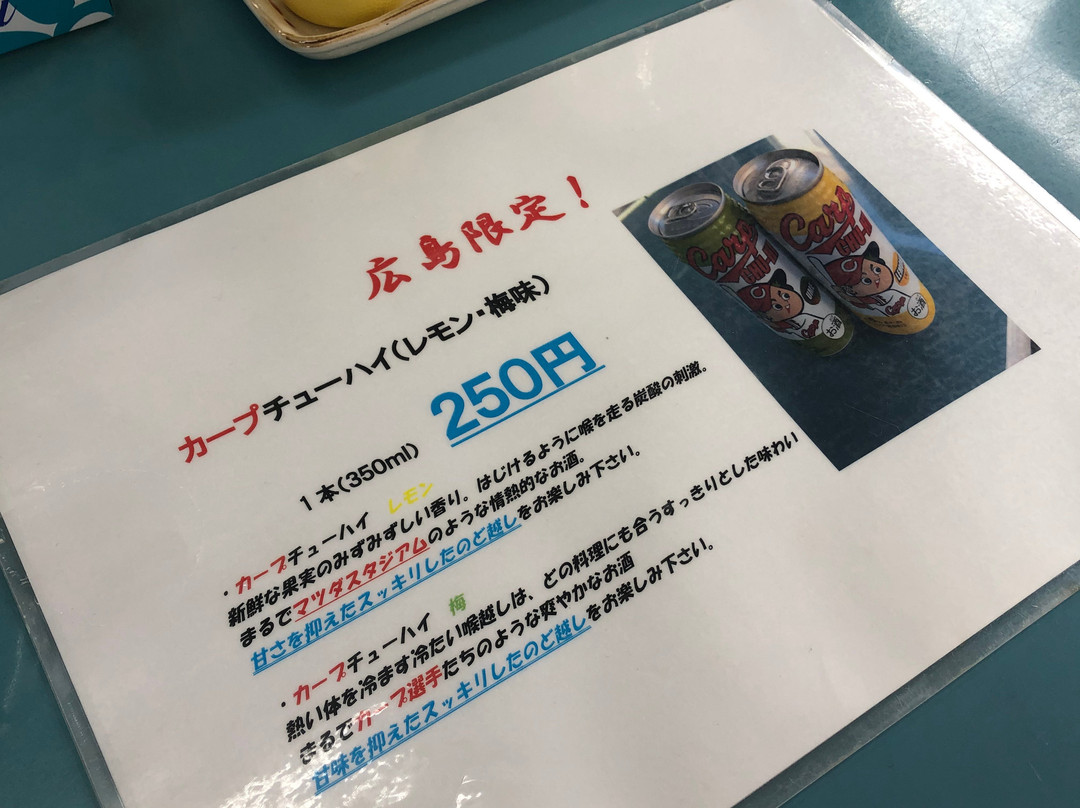 広島限定！
カープチューハイ（レモン・梅味）
1本（350ml） 250円
・カープチューハイ レモン
新鮮な果実のみずみずしい香り。はじけるように喉を走る炭酸の刺激。
まるでマツダスタジアムのような情熱的なお酒。
甘さを抑えたスッキリしたのど越しをお楽しみ下さい。
・カープチューハイ 梅
熱い体を冷ます冷たい喉越しは、どの料理にも合うすっきりとした味わい
まるでカープ選手たちのような爽やかなお酒
甘味を抑えたスッキリしたのど越しをお楽しみ下さい。
Carp
CHU-HI
お酒
Carp
CHU-HI
お酒